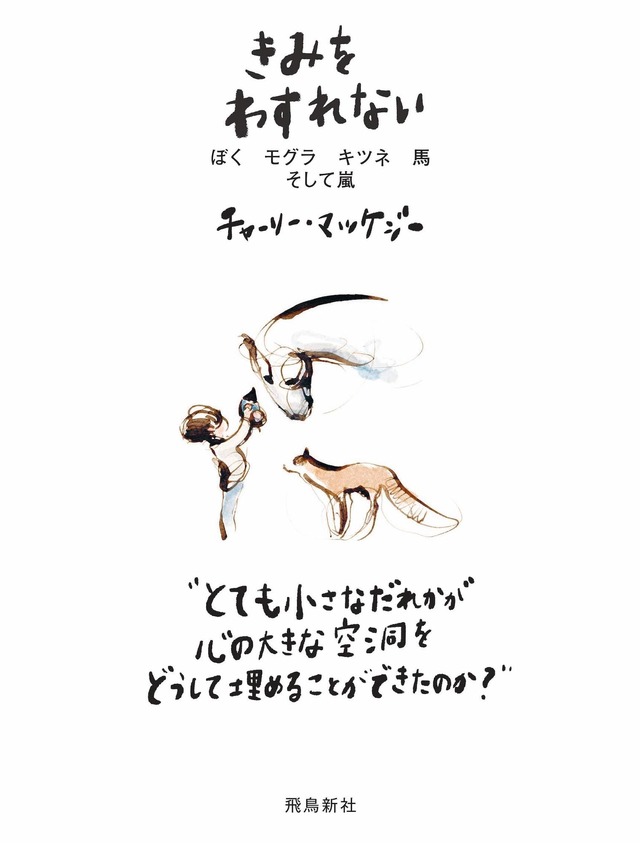 きみを
わすれない
ぼく　モグラ　キツネ　馬
そして嵐
チャーリー・マッケジー
“とても小さなだれかが
心の大きな空洞を
どうして埋めることができたのか？”
飛鳥新社